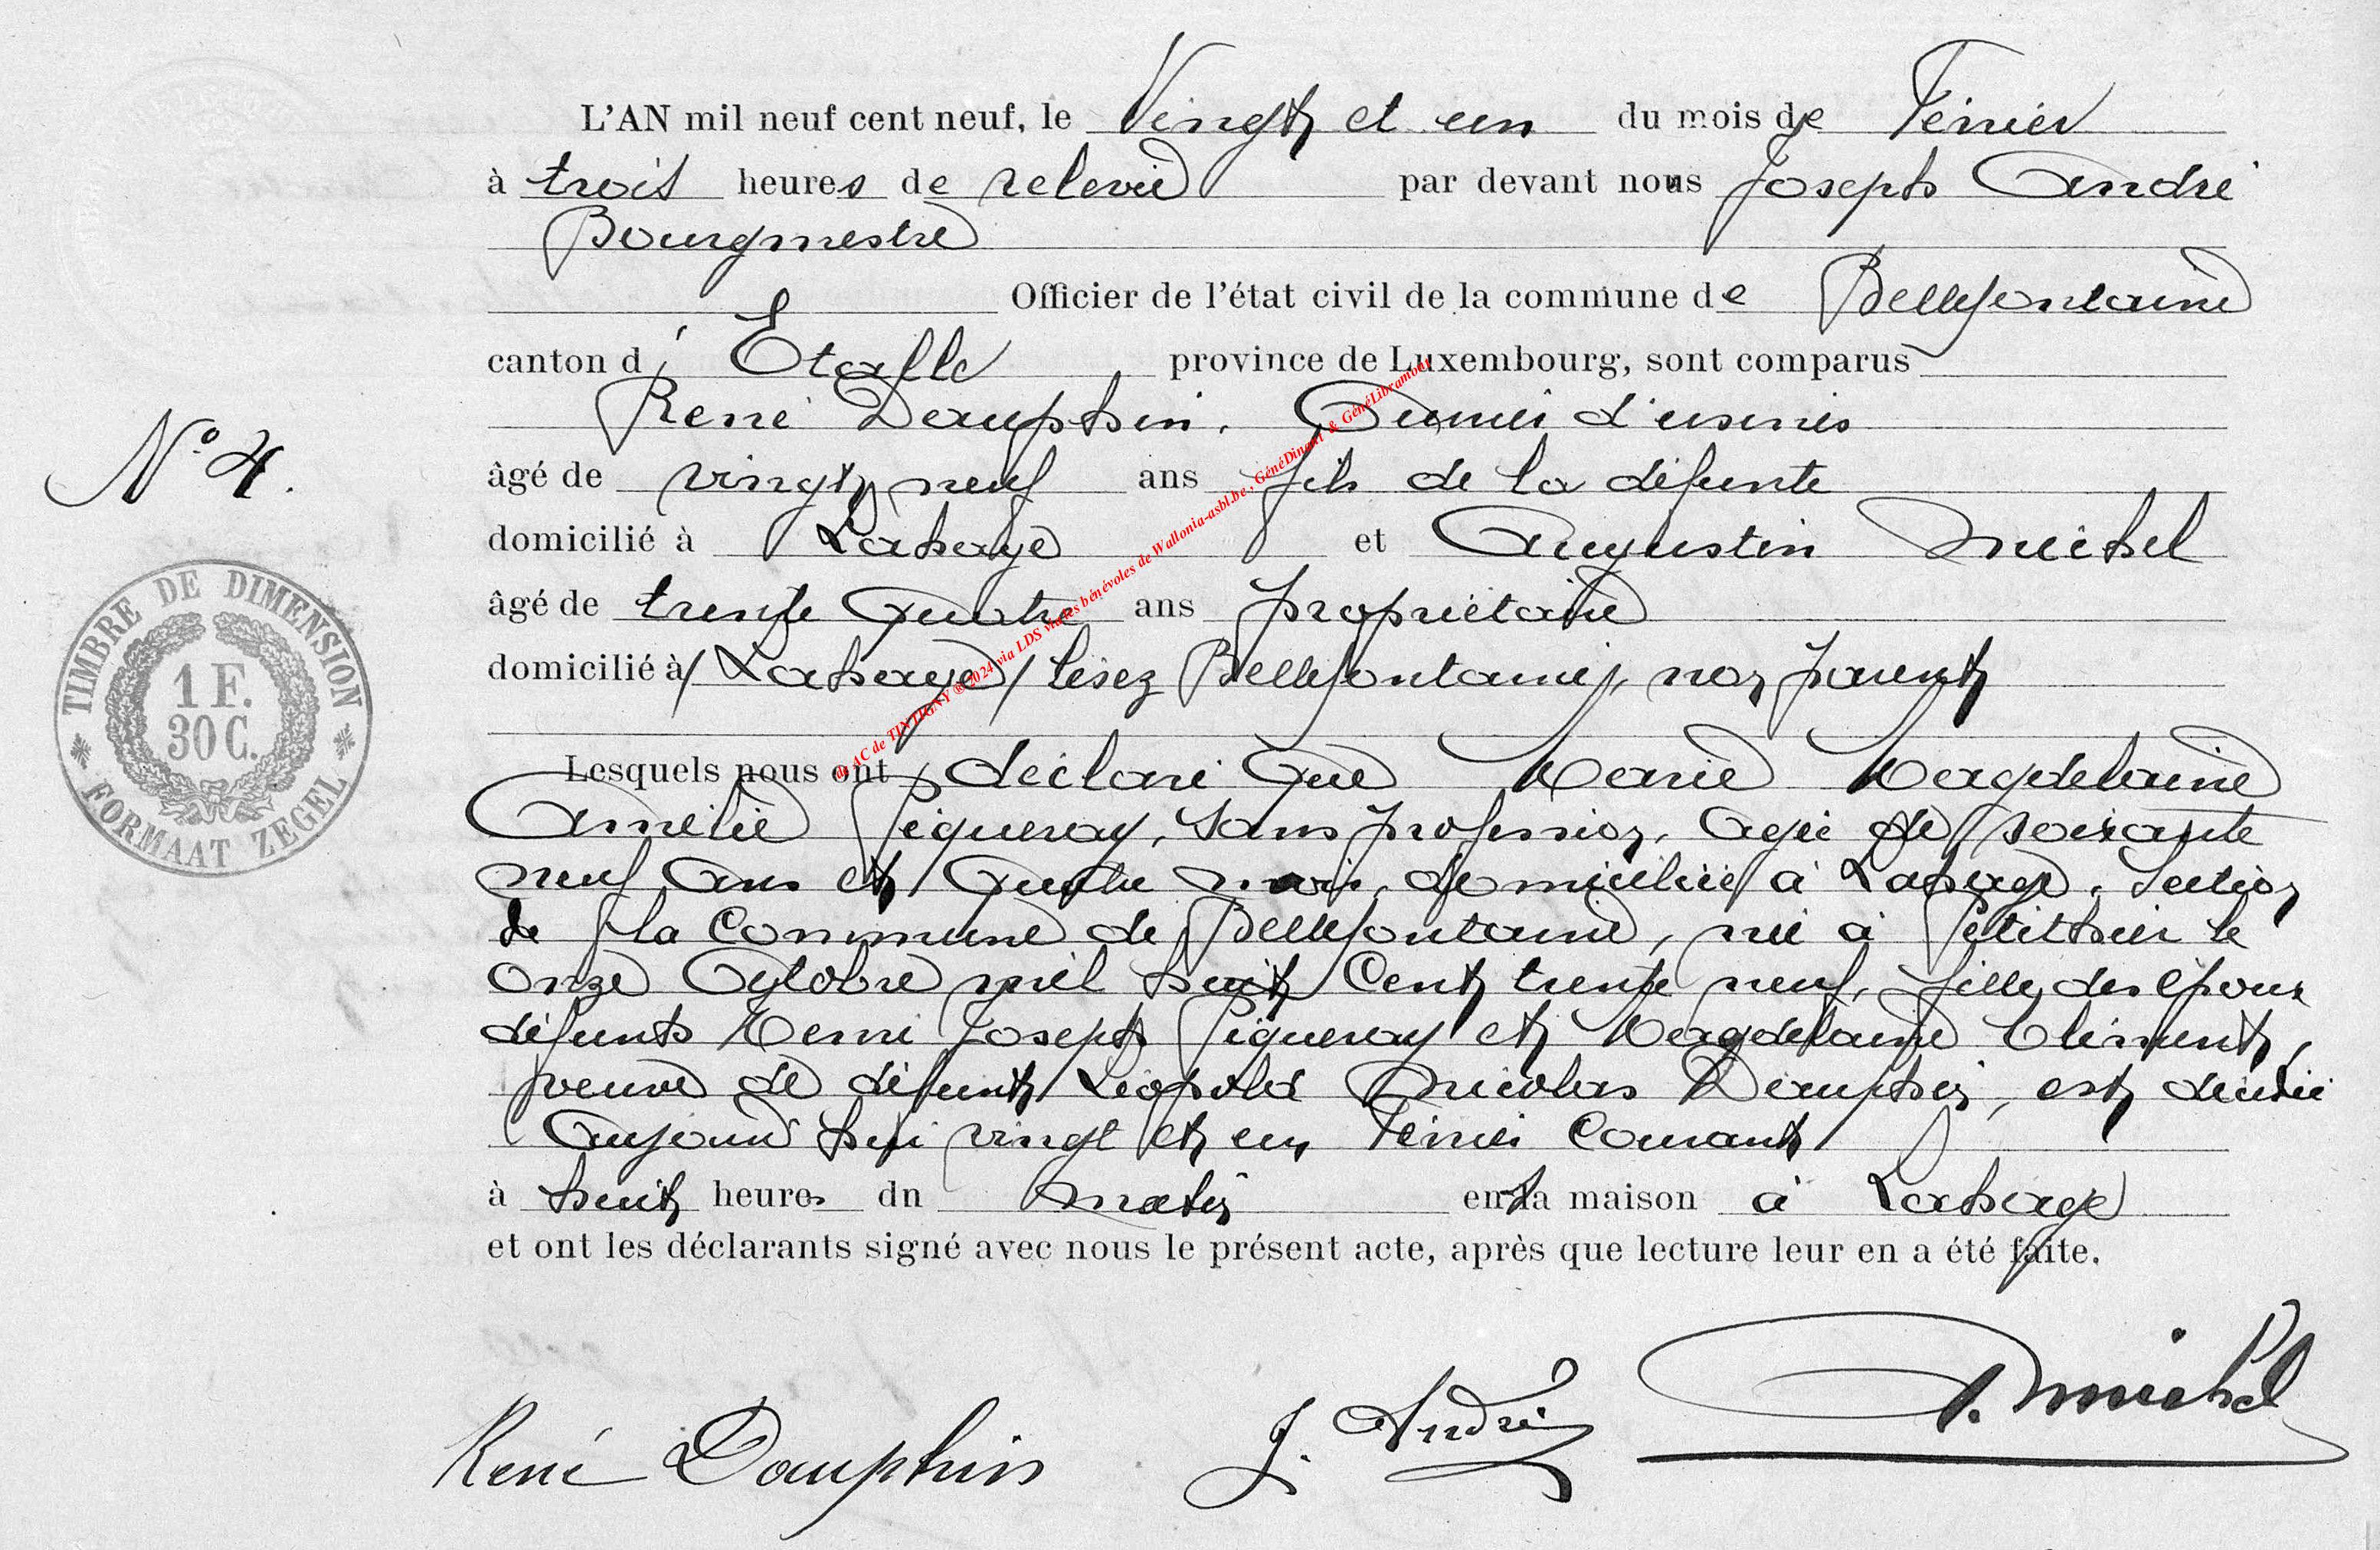 L'AN mil neuf cent neuf, le Vingt et un du mois de Février
à trois heures de relevée par devant nous Joseph André
Bourgmestre
Officier de l'état civil de la commune de Bellefontaine
canton d' Etalle province de Luxembourg, sont comparus
René Dauphin, d'usines
N° 4.
âgé de vingt neuf ans fils de la défunte
domicilié à Lahaye et Augustin Michel
âgé de trente quatre ans propriétaire
domicilié à (Lahaye) lisez Bellefontaine, non parent
TIMBRE DE DIMENSION
1 F.
30 C.
FORMAAT ZEGEL
Lesquels nous ont déclaré que Marie Magdelaine
Amélie Piqueray, sans profession, agée de soixante
neuf ans et quatre mois, domiciliée à Lahage, section
de la Commune de Bellefontaine, née à Petitthier le
onze Octobre mil huit Cent trente neuf, fille des époux
défunts Henri Joseph Piqueray et Magdelaine Clément,
veuve de défunt Léopold Nicolas Dauphin, est décédée
Aujourd'hui vingt et un Février Courant
à huit heures du matin en la maison à Lahage
et ont les déclarants signé avec nous le présent acte, après que lecture leur en a été faite.
René Dauphin J. André A. Michel
de AC de TINTIGNY ® 2024 via LDS via les bénévoles de Wallonia-asbl.be, GénéDinant & GénéLibramont